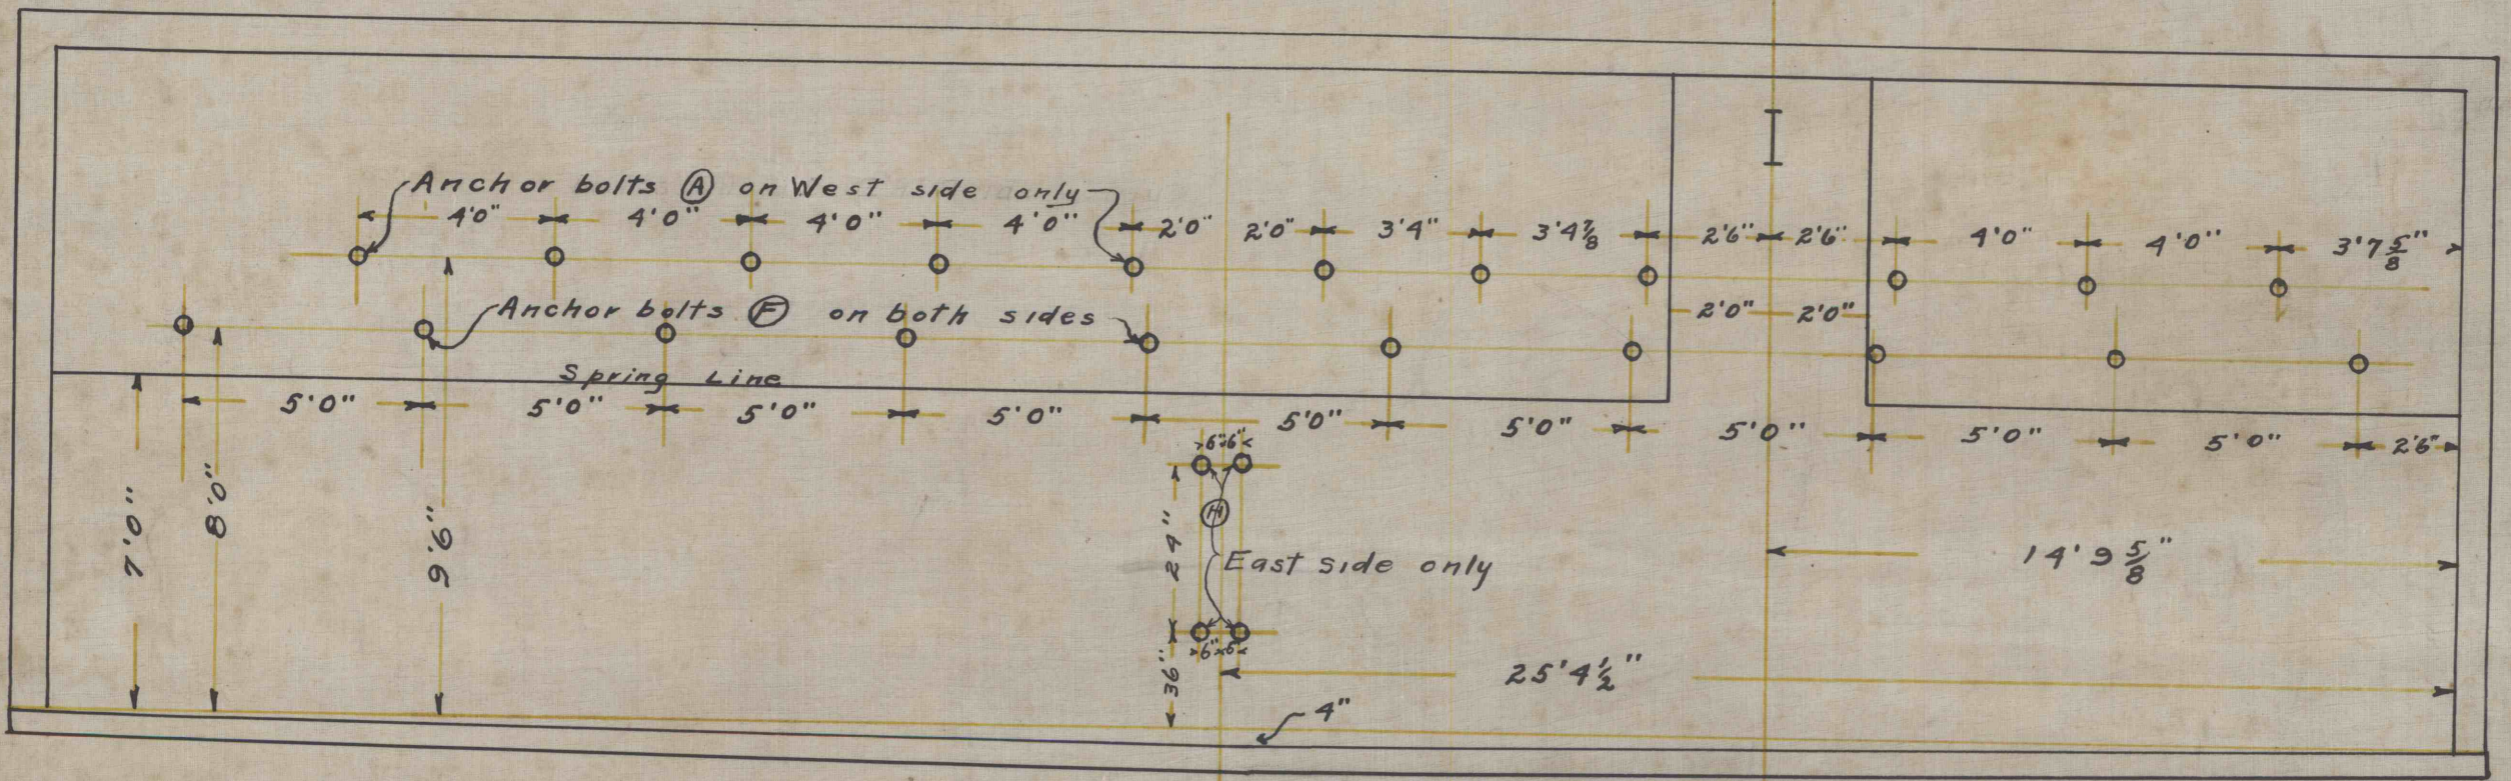 Anchor bolts Ⓐ on West side only
4'0" 4'0" 4'0" 4'0" 2'0" 2'0" 3'4" 3'4⅞ 2'6" 2'6" 4'0" 4'0" 3'7⅝"
Anchor bolts Ⓕ on both sides
2'0" 2'0"
Spring Line
5'0" 5'0" 5'0" 5'0" 5'0" 5'0" 5'0" 5'0" 5'0" 2'6"
6" 6"
7'0" 8'0" 9'6" 24"
Ⓗ
East side only
14'9⅝"
6" 6"
36"
25'4½"
4"